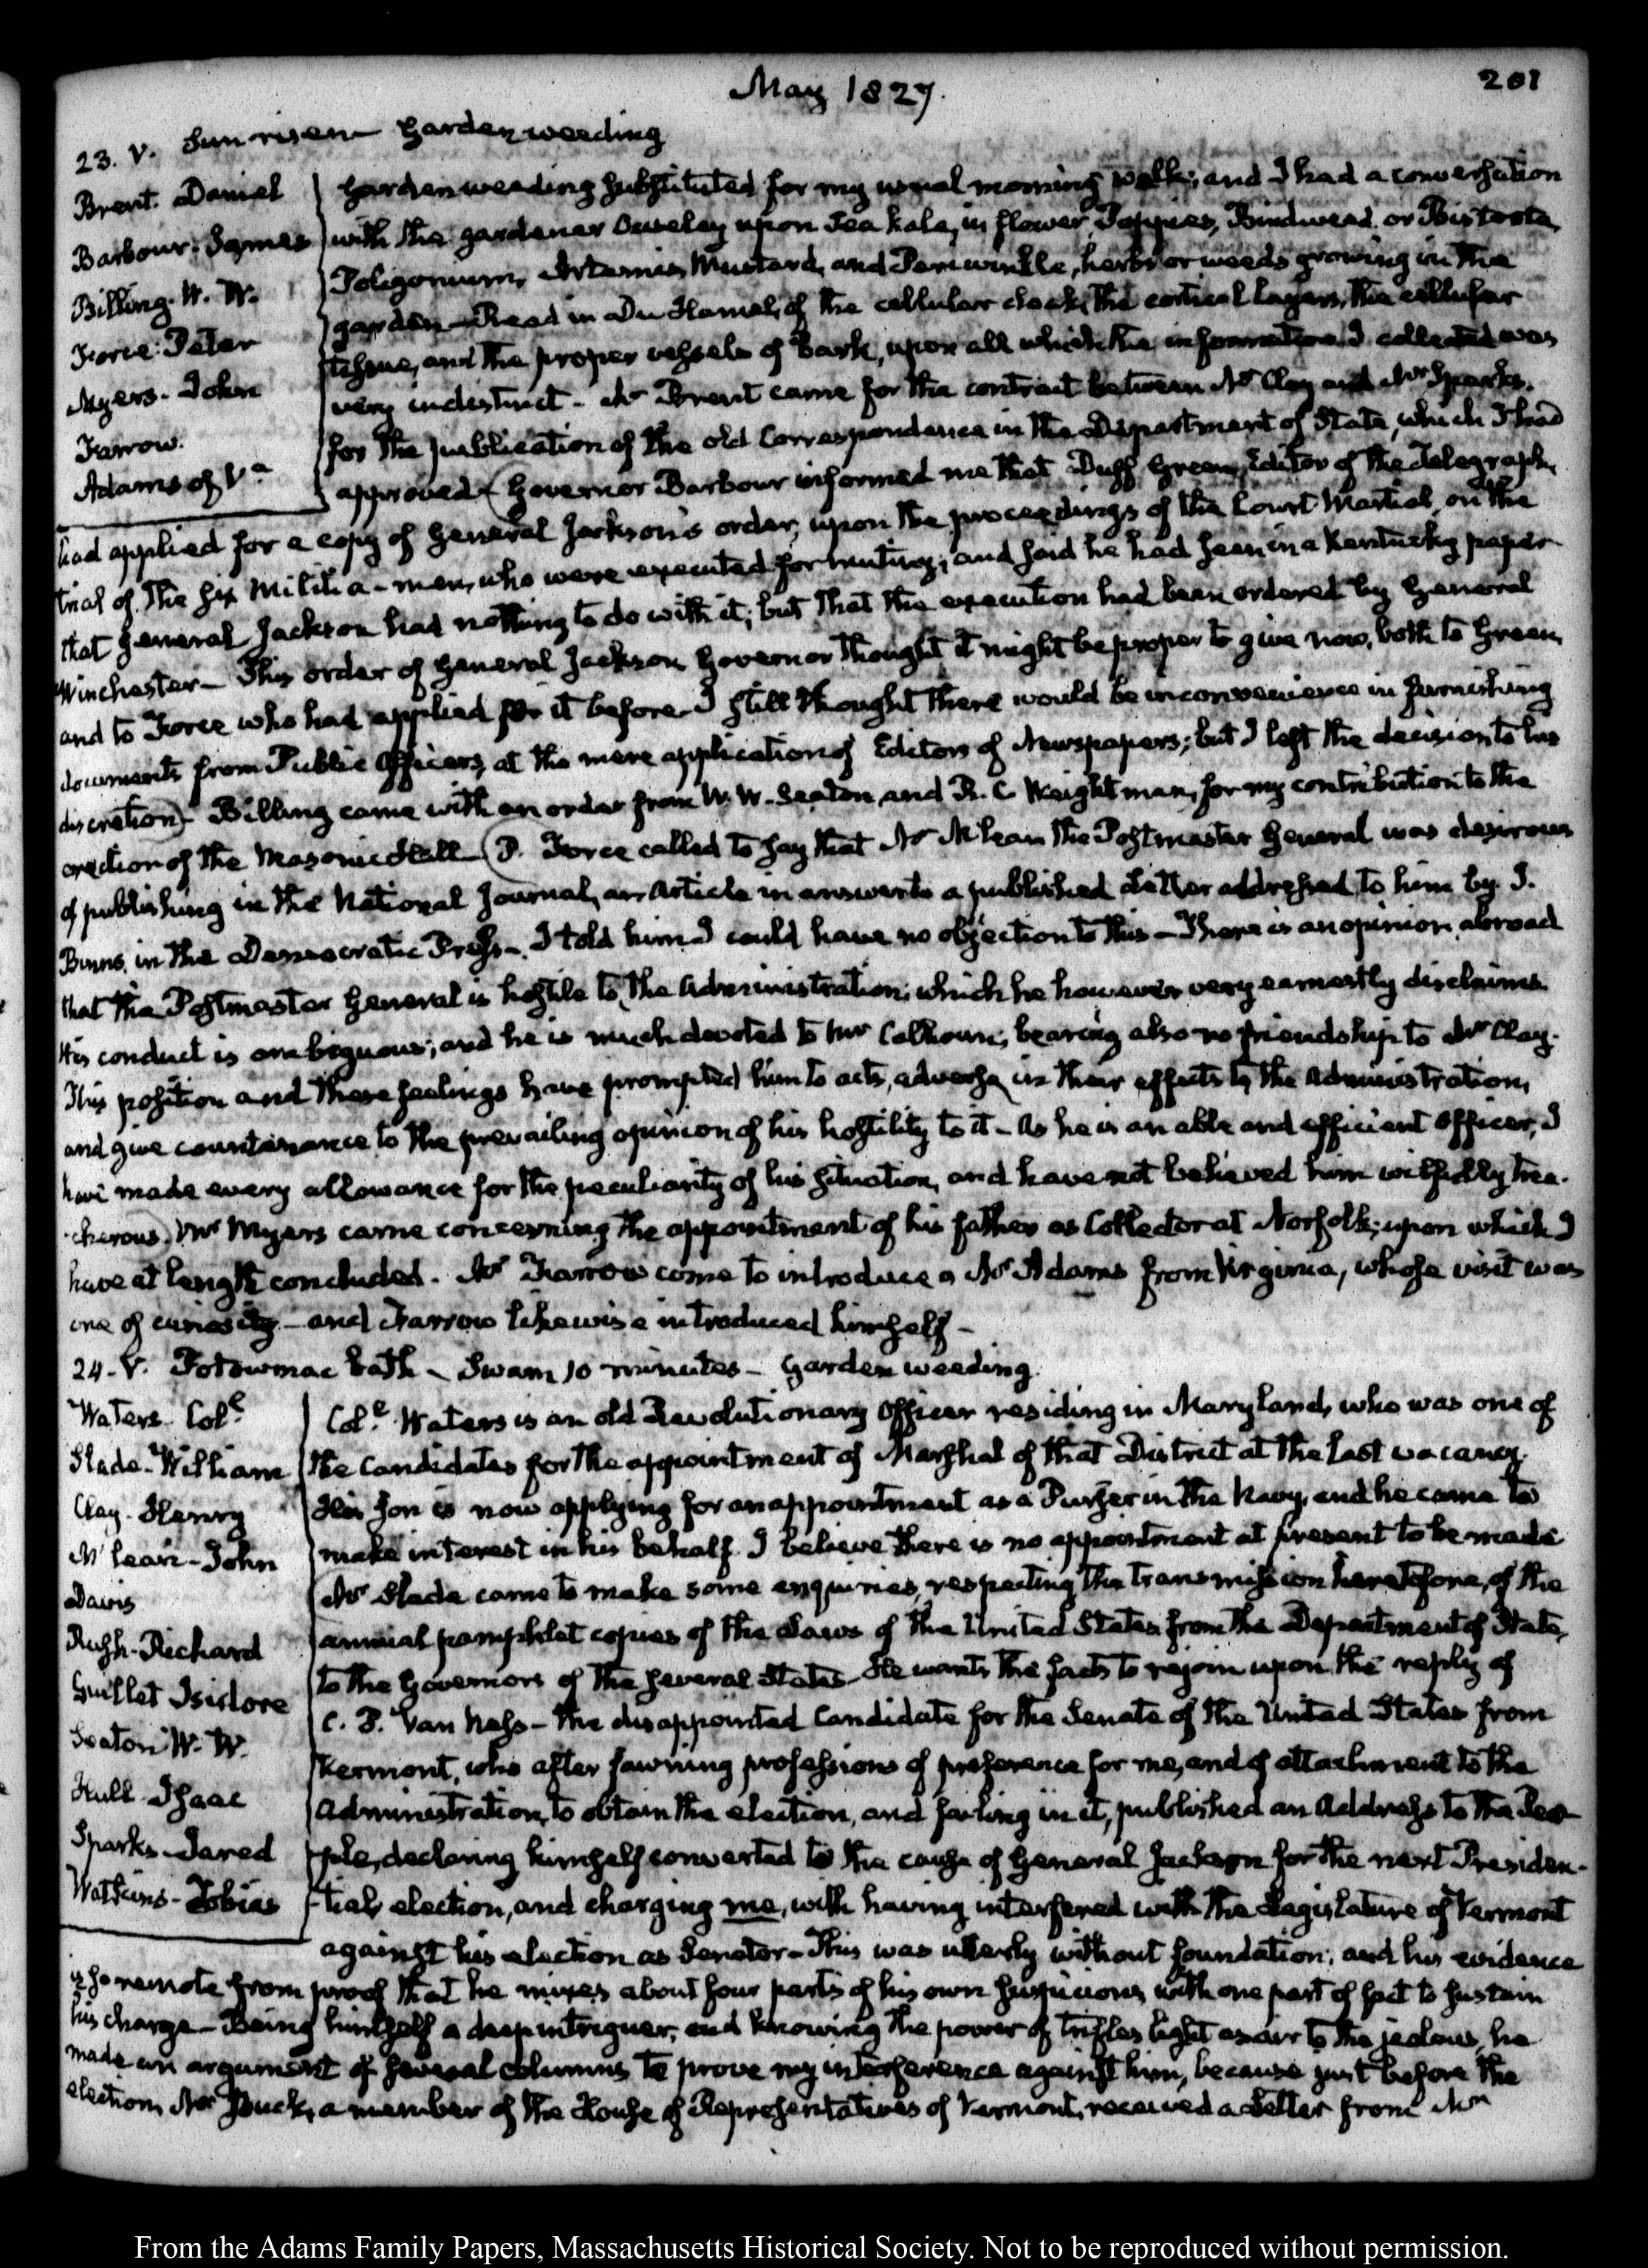 May 1827.
201
23. V. Sun risen Garden weeding
Brent. Daniel
Barbour. James
Billing. W. W.
Force. Peter
Myers. John
Farrow.
Adams of Va
Garden weeding substituted for my usual morning walk; and I had a conversation
with the gardener Ouseley upon Sea kale, in flower, Poppies, Bindweed or Bistorta,
Poligonum, Mustard, and Periwinkle, herbs or weeds growing in the
garden—Read in Du Hamel, of the cellular cloak, the cortical layers, the cellular
tissue, and the proper vessels of Bark, upon all which the information I collected was
very indistinct—Mr Brent came for the contract between Mr Clay and Mr Sparks.
for the publication of the old Correspondence in the Department of State, which I had
approved. (Governor Barbour informed me that Duff Green, Editor of the Telegraph,
had applied for a copy of General Jackson's order, upon the proceedings of the Court Martial, on the
trial of the six Militia-men, who were executed for mutiny; and said he had seen in a Kentucky paper
that General Jackson had nothing to do with it; but that the execution had been ordered by General
Winchester—This order of General Jackson Governor thought it might be proper to give now, both to Green,
and to Force who had applied for it before—I still thought there would be inconvenience in furnishing
documents from Public Officers, at the mere application of Editors of Newspapers; but I left the decision to his
discretion)—Billing came with an order from W. W. Seaton, and R. C. Weightman, for my contribution to the
erection of the Masonic Hall—(P. Force called to say that Mr McLean the Postmaster General was desirous
of publishing in the National Journal, an Article in answer to a published Letter addressed to him by J.
Binns, in the Democratic Press—I told him I could have no objection to this—There is an opinion abroad
that the Postmaster General is hostile to the Administration; which he however very earnestly disclaims.
His conduct is ambiguous; and he is much devoted to Mr Calhoun; bearing also no friendship to Mr Clay.
This position and these feelings have prompted him to acts, adverse in their effects to the Administration,
and give countenance to the prevailing opinion of his hostility to it—As he is an able and efficient Officer, I
have made every allowance for the peculiarity of his situation, and have not believed him wilfully trea-
-cherous.) Mr Myers came concerning the appointment of his father as Collector at Norfolk; upon which I
have at length concluded. Mr Farrow came to introduce a Mr Adams from Virginia, whose visit was
one of curiosity—and Farrow likewise introduced himself—
24. V. Potowmac bath—Swam 10 minutes—Garden weeding.
Waters Coll
Slade. William
Clay. Henry
McLean. John
Davis
Rush. Richard
Guillet Isidore
Seaton W. W.
Hull. Isaac
Sparks. Jared
Watkins. Tobias
Coll Waters is an old Revolutionary Officer residing in Maryland, who was one of
the Candidates for the appointment of Marshal of that District at the last vacancy.
His son is now applying for an appointment as a Purser in the Navy, and he came to
make interest in his behalf. I believe there is no appointment at present to be made
Mr Slade came to make some enquiries, respecting the transmission heretofore, of the
annual pamphlet copies of the Laws of the United States from the Department of State,
to the Governors of the several States. He wants the facts to rejoin upon the reply of
C. P. Van Ness—the disappointed Candidate for the Senate of the United States from
Vermont, who after fawning professions of preference for me, and of attachment to the
Administration, to obtain the election, and failing in it, published an Address to the Peo-
ple, declaring himself converted to the cause of General Jackson for the next Presiden-
tial election, and charging me, with having interfered with the Legislature of Vermont
against his election as Senator—This was utterly without foundation; and his evidence
is so remote from proof that he mixes about four parts of his own suspicions with one part of fact to sustain
his charge—Being himself a deep intriguer, and knowing the power of trifles light as air to the jealous, he
made an argument of several columns to prove my interference against him, because just before the
election, Mr Buck, a member of the House of Representatives of Vermont, received a Letter from Mr
From the Adams Family Papers, Massachusetts Historical Society. Not to be reproduced without permission.